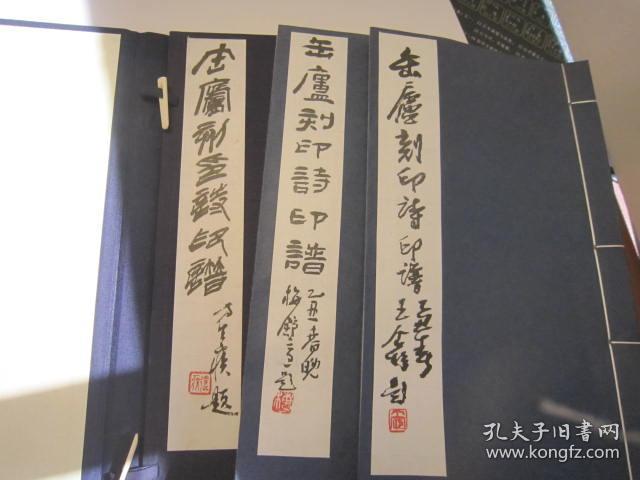 缶廬刻印詩印譜
乙丑春
王鑫
缶廬刻印詩印譜
乙丑春晚
梅舒
題
缶廬刻印詩印譜
題
孔夫子旧书网
www.kongfz.com